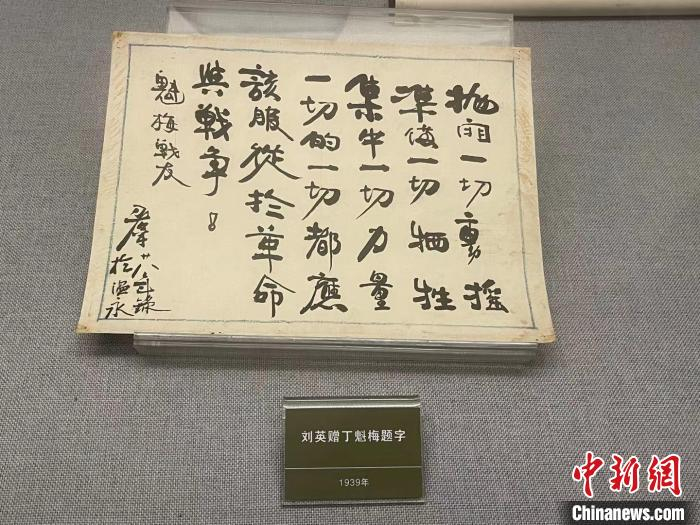 抛開一切動摇
準備一切牺牲
集中一切力量
一切的一切都應
該服從於革命
與戰争！
魁梅戰友
廿八年錄
於温永
刘英赠丁魁梅题字
1939年
中新网
Chinanews.com